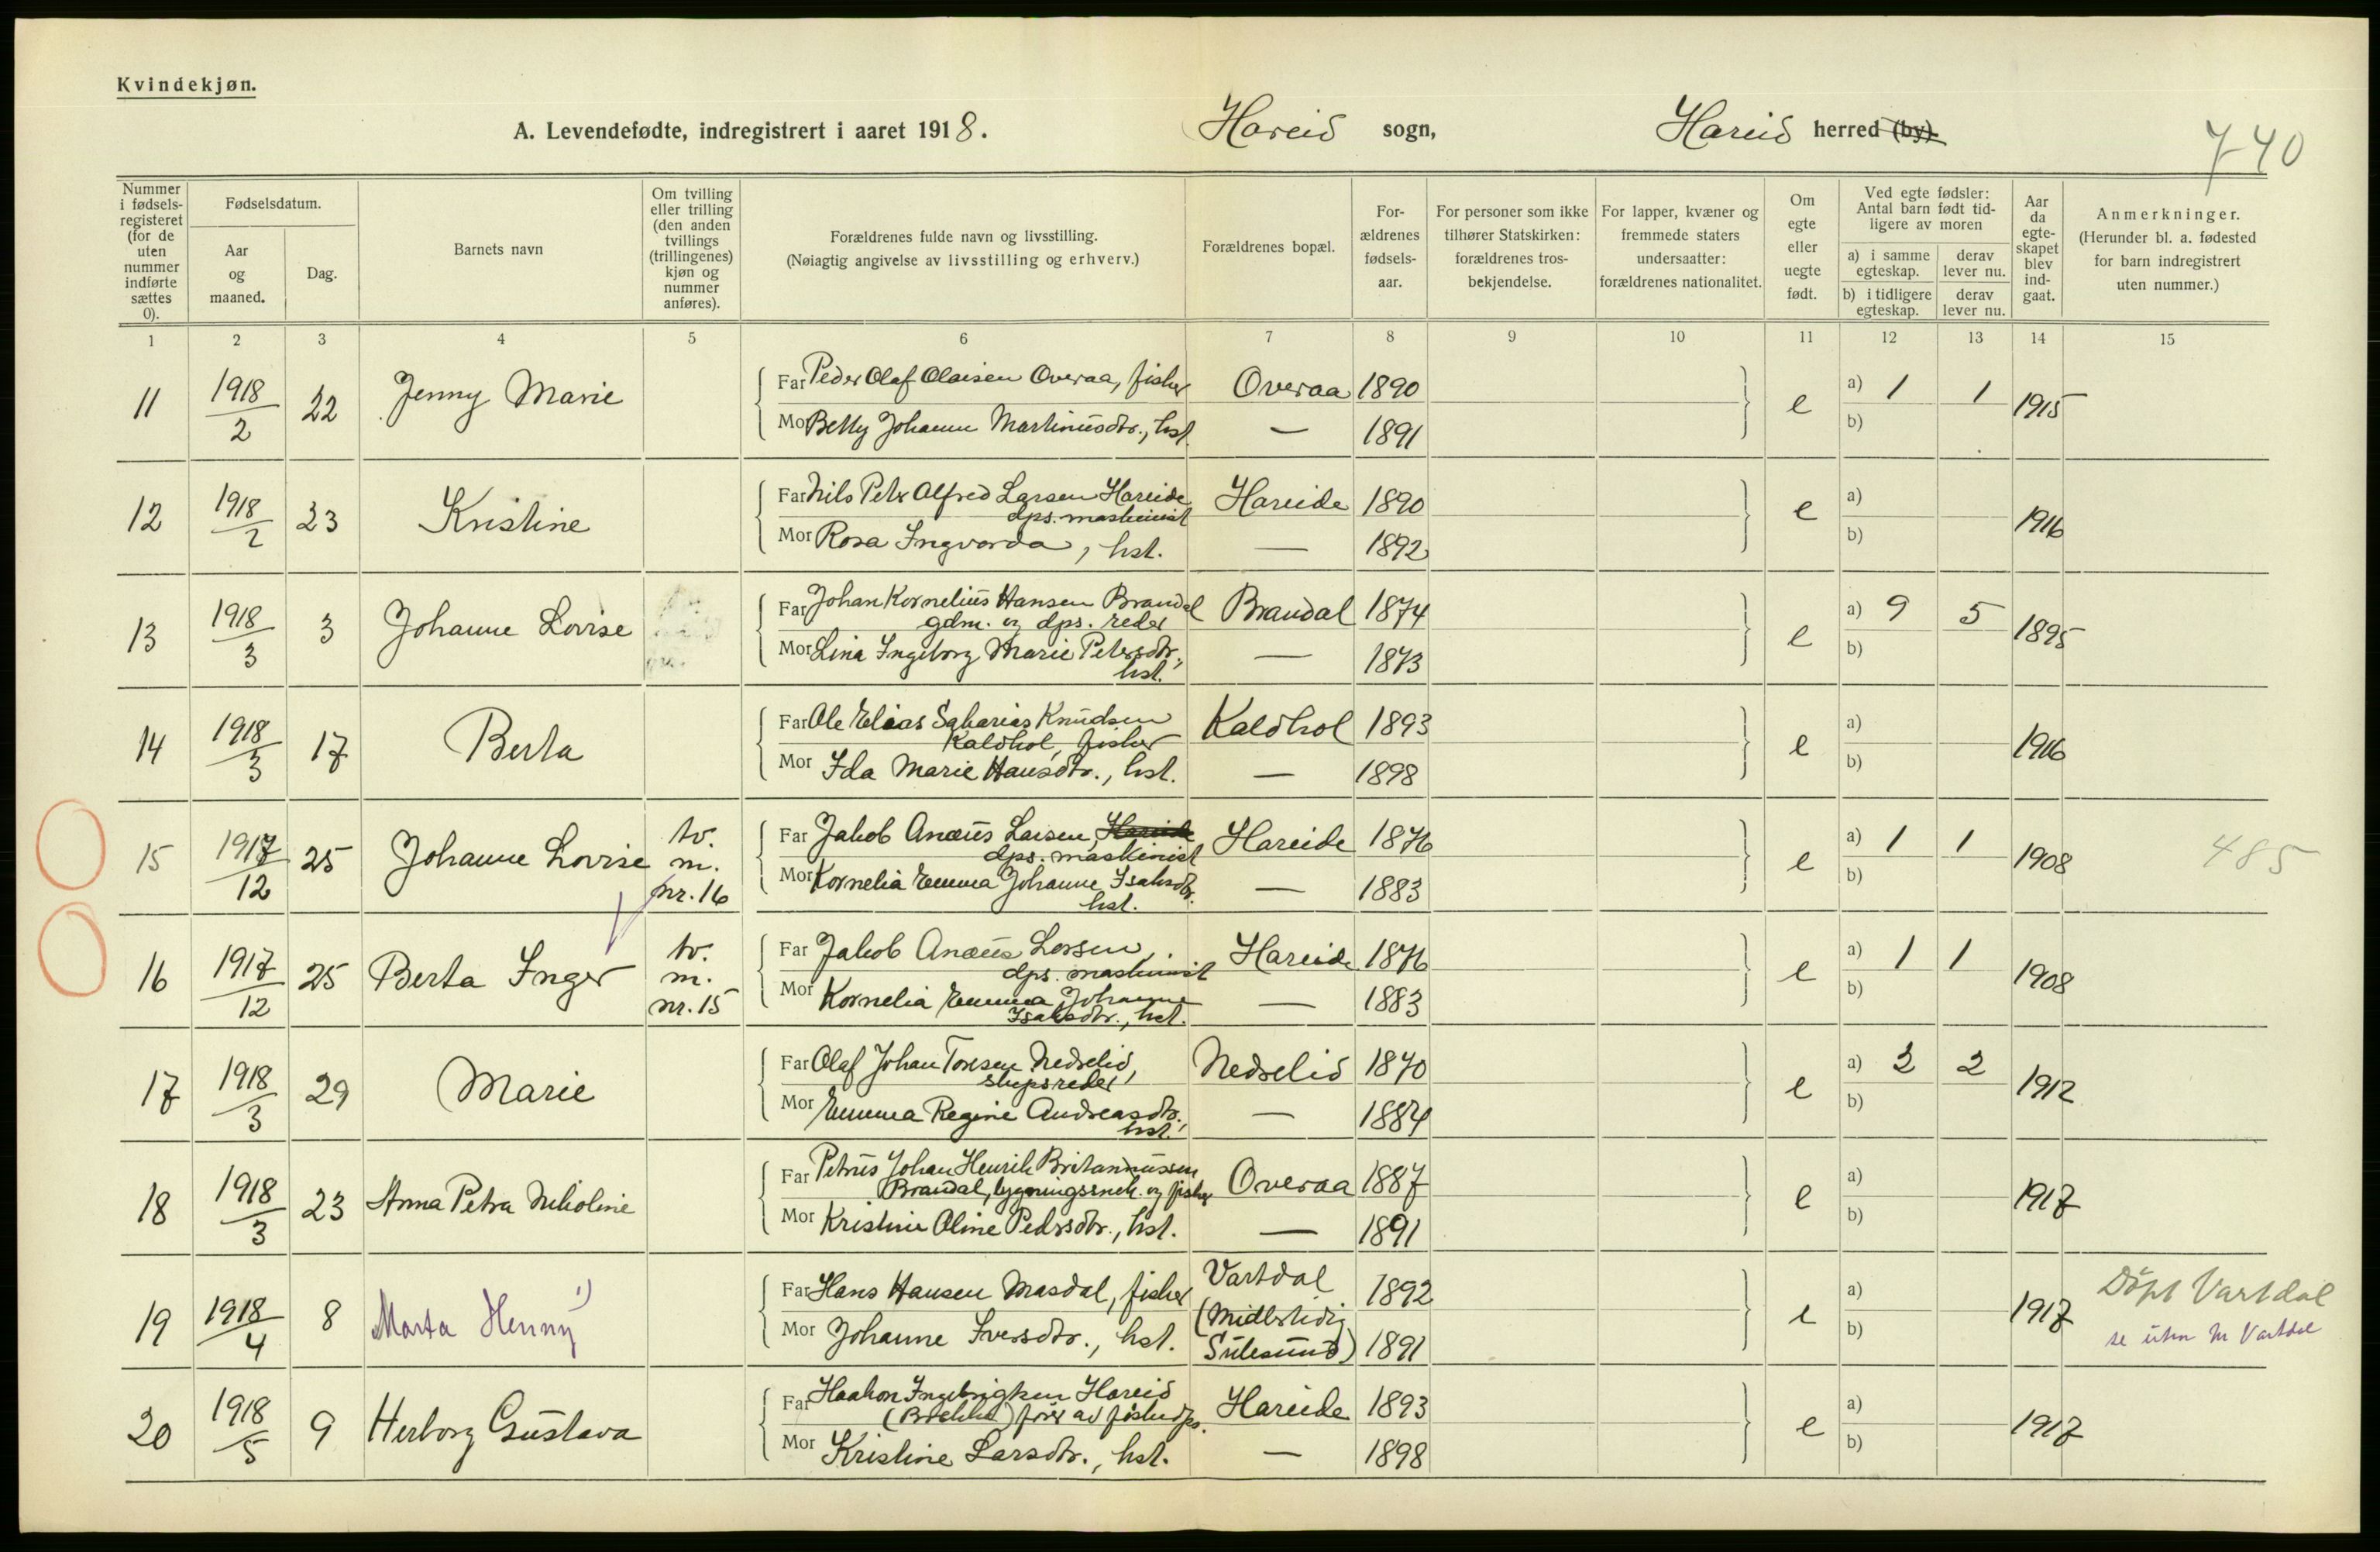 Kvindekjøn.
A. Levendefødte, indregistrert i aaret 1918. Hareid sogn, Hareid herred (by).
740
Nummer i fødsels-registeret (for de uten nummer indførte sættes 0).
Fødselsdatum.
Aar og maaned.
Dag.
Barnets navn
Om tvilling eller trilling (den anden tvillings (trillingenes) kjøn og nummer anføres).
Forældrenes fulde navn og livsstilling.
(Nøiagtig angivelse av livsstilling og erhverv.)
Forældrenes bopæl.
For-ældrenes fødsels-aar.
For personer som ikke tilhører Statskirken: forældrenes tros-bekjendelse.
For lapper, kvæner og fremmede staters undersaatter: forældrenes nationalitet.
Om egte eller uegte født.
Ved egte fødsler: Antal barn født tid-ligere av moren
a) i samme egteskap.
derav lever nu.
b) i tidligere egteskap.
derav lever nu.
Aar da egte-skapet blev ind-gaat.
Anmerkninger.
(Herunder bl. a. fødested for barn indregistrert uten nummer.)
1 2 3 4 5 6 7 8 9 10 11 12 13 14 15
11 1918/2 22 Jenny Marie Far Peder Olaf Olaisen Overaa, fisker Overaa 1890 e a) 1 1 1915
Mor Betty Johanne Martinusdtr., hst. — 1891 b)
12 1918/2 23 Kristine Far Nils Petr Alfred Larsen Hareide Hareide 1890 e a) 1916
dps. maskinist
Mor Rosa Ingvarda, hst. — 1892 b)
13 1918/3 3 Johanne Lovise Far Johan Kornelius Hansen Brandal Brandal 1874 e a) 9 5 1895
gdm. og dps. reder
Mor Lina Ingeborg Marie Petersdtr., — 1873 b)
hst.
14 1918/3 17 Berta Far Ole Elias Sakarias Knudsen Kaldhol 1893 e a) 1916
Kaldhol, fisker
Mor Ida Marie Hansdtr., hst. — 1898 b)
15 1917/12 25 Johanne Lovise tv. m. nr. 16 Far Jakob Anæus Larsen, Hareide Hareide 1876 e a) 1 1 1908 485
dps. maskinist
Mor Kornelia Emma Johanne Isaksdtr. — 1883 b)
hst.
16 1917/12 25 Berta Inger tv. m. nr. 15 Far Jakob Anæus Larsen, Hareide 1876 e a) 1 1 1908
dps. maskinist
Mor Kornelia Emma Johanne — 1883 b)
Isaksdtr., hst.
17 1918/3 29 Marie Far Olaf Johan Toresen Nedrelid, Nedrelid 1870 e a) 2 2 1912
slupsreder
Mor Emma Regine Andreasdtr., — 1884 b)
hst.
18 1918/3 23 Anna Petra Nikoline Far Petrus Johan Henrik Britanniussen Overaa 1887 e a) 1917
Brandal, bygningssnek. og fisker
Mor Kristine Oline Pedrsdtr., hst. — 1891 b)
19 1918/4 8 Marta Henny 1) Far Hans Hansen Masdal, fisker Vartdal 1892 e a) 1917 Döpt Vartdal
(Midlertidig
Mor Johanne Iversdtr., hst. Sulesund) 1891 b) se uten nr Vartdal
20 1918/5 9 Herborg Gustava Far Haakon Ingebrigtsen Hareid Hareide 1893 e a) 1917
fører av fiskedps.
Mor Kristine Larsdtr., hst. — 1898 b)